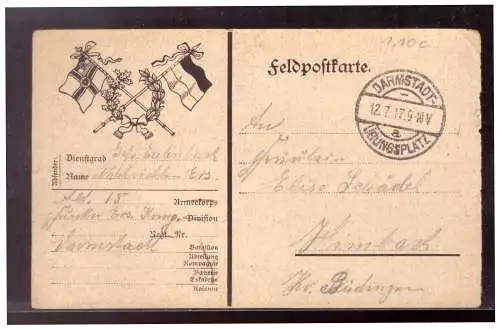 1,10c
Feldpostkarte.
DARMSTADT-
12.7.17.9-10V
a
ÜBUNGSPLATZ
Absender:
Dienstgrad
Name Ers
Abt. 15 Armeekorps
Funker Ers. Komp. Division
Regt. Nr.
Darmstadt Bataillon
Abteilung
Kompagnie
Batterie
Eskadron
Kolonne
An
Fräulein
Elise Schädel
Himbach
Kr. Büdingen